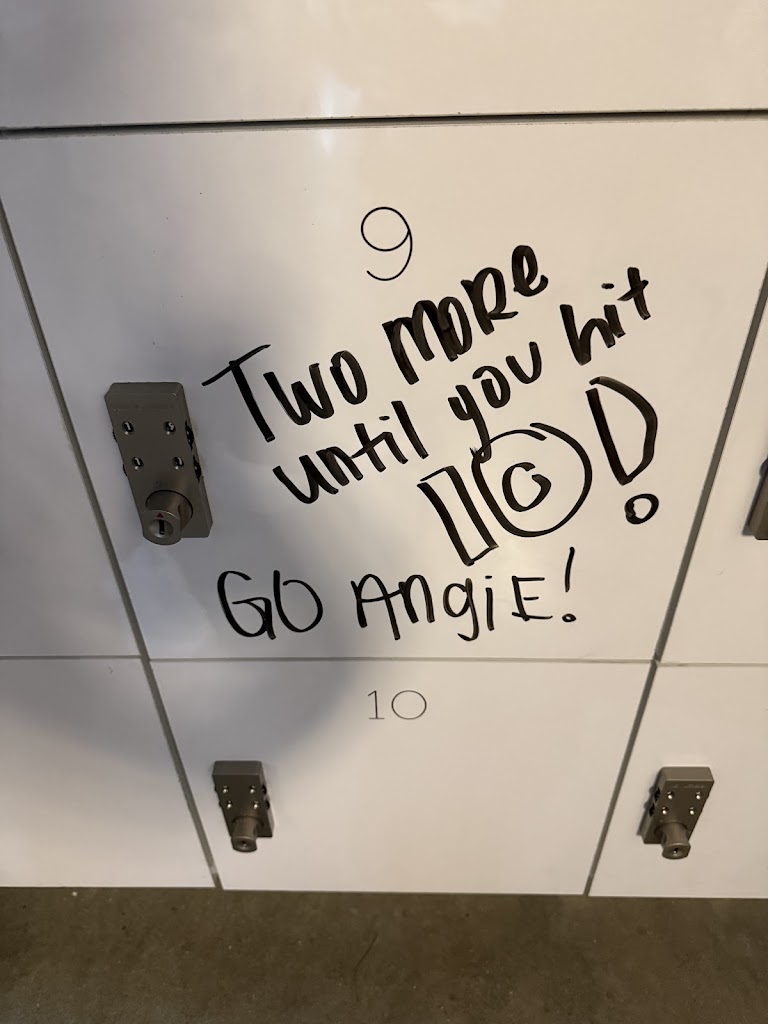 9
Two more
until you hit
10!
Go Angie!
10